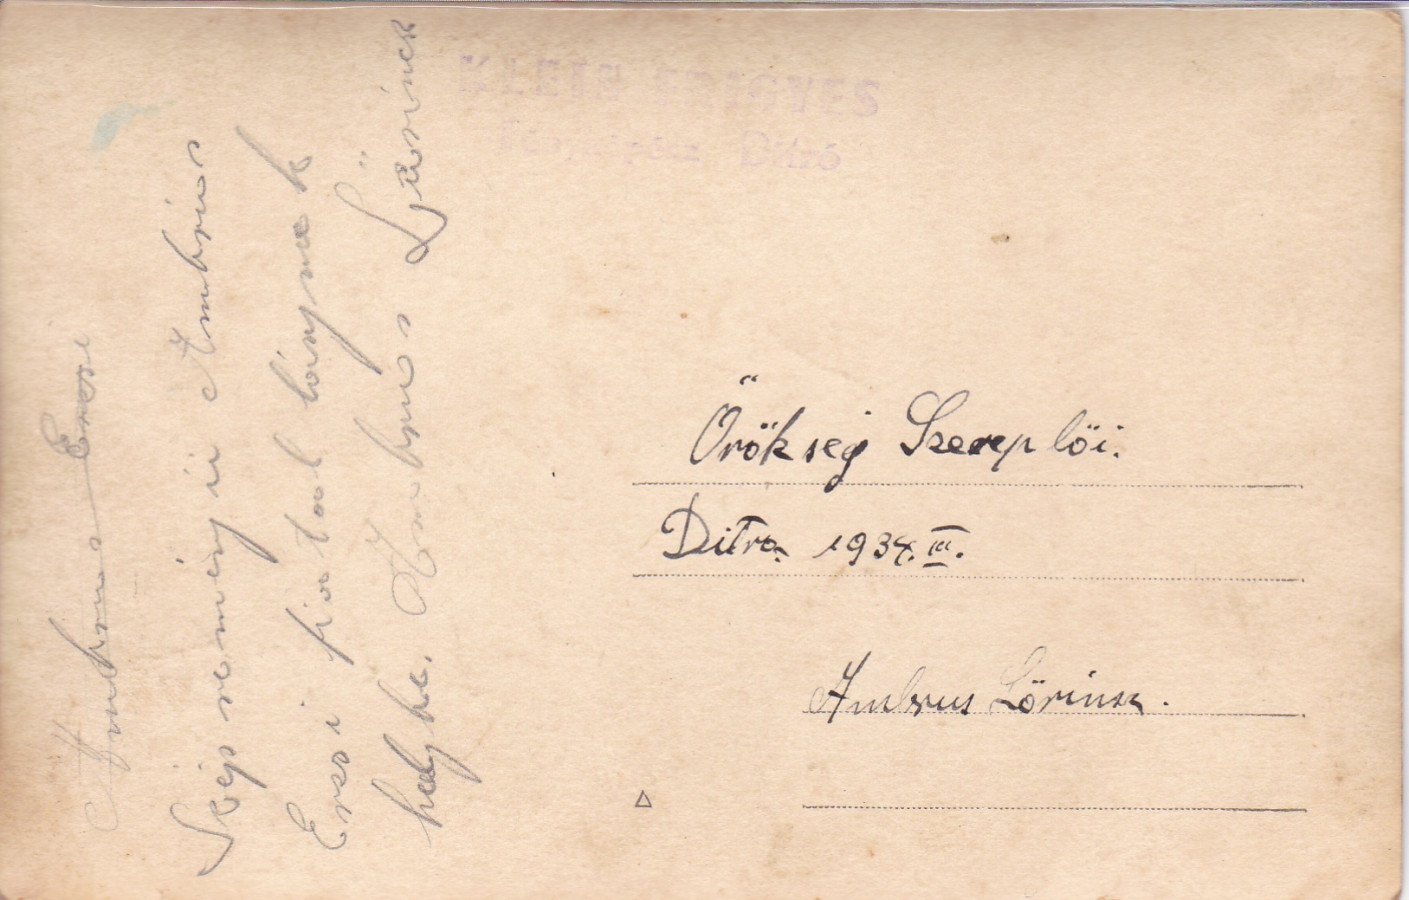 KLEIN FRIGYES
Fényképész Ditró
Ambrus Erssi
Szép reményü Ambrus
Erssi fiatal lánynak
helybe. Ambrus Lőrincz
Örökség Szereplöi.
Ditro. 1934. III.
Ambrus Lörincz.